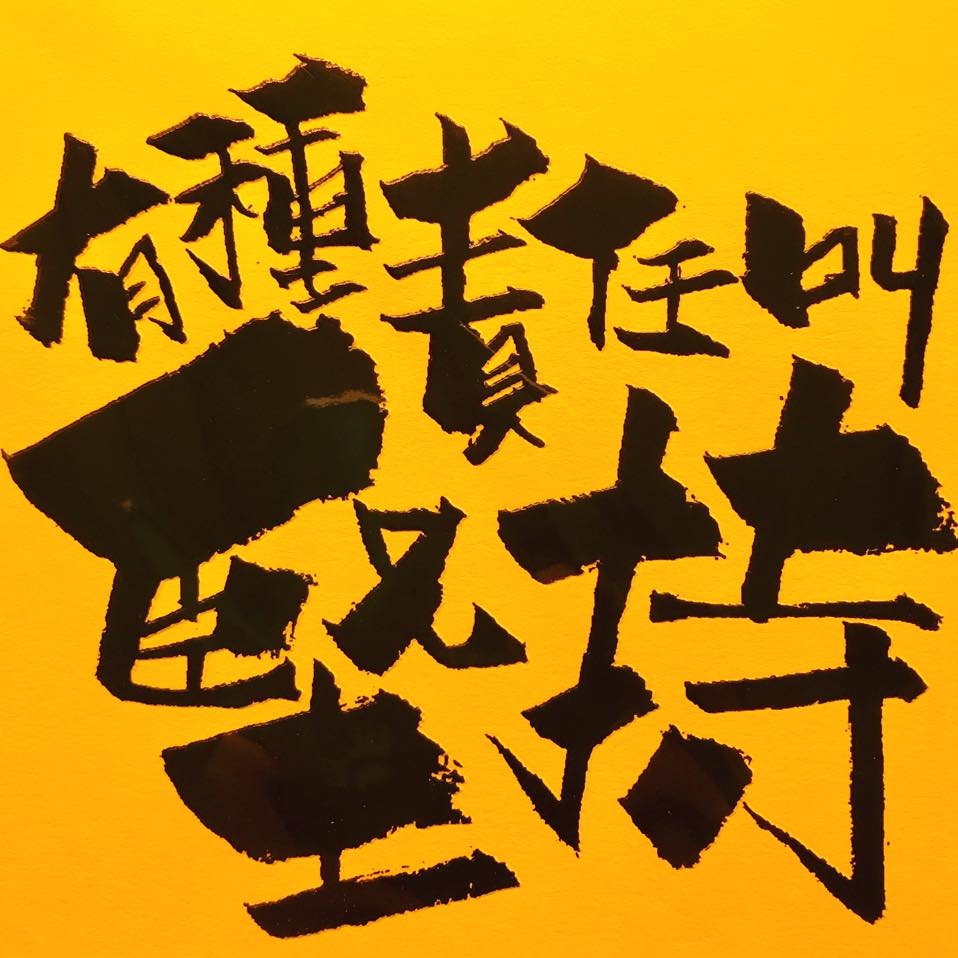 有種責任叫
堅持